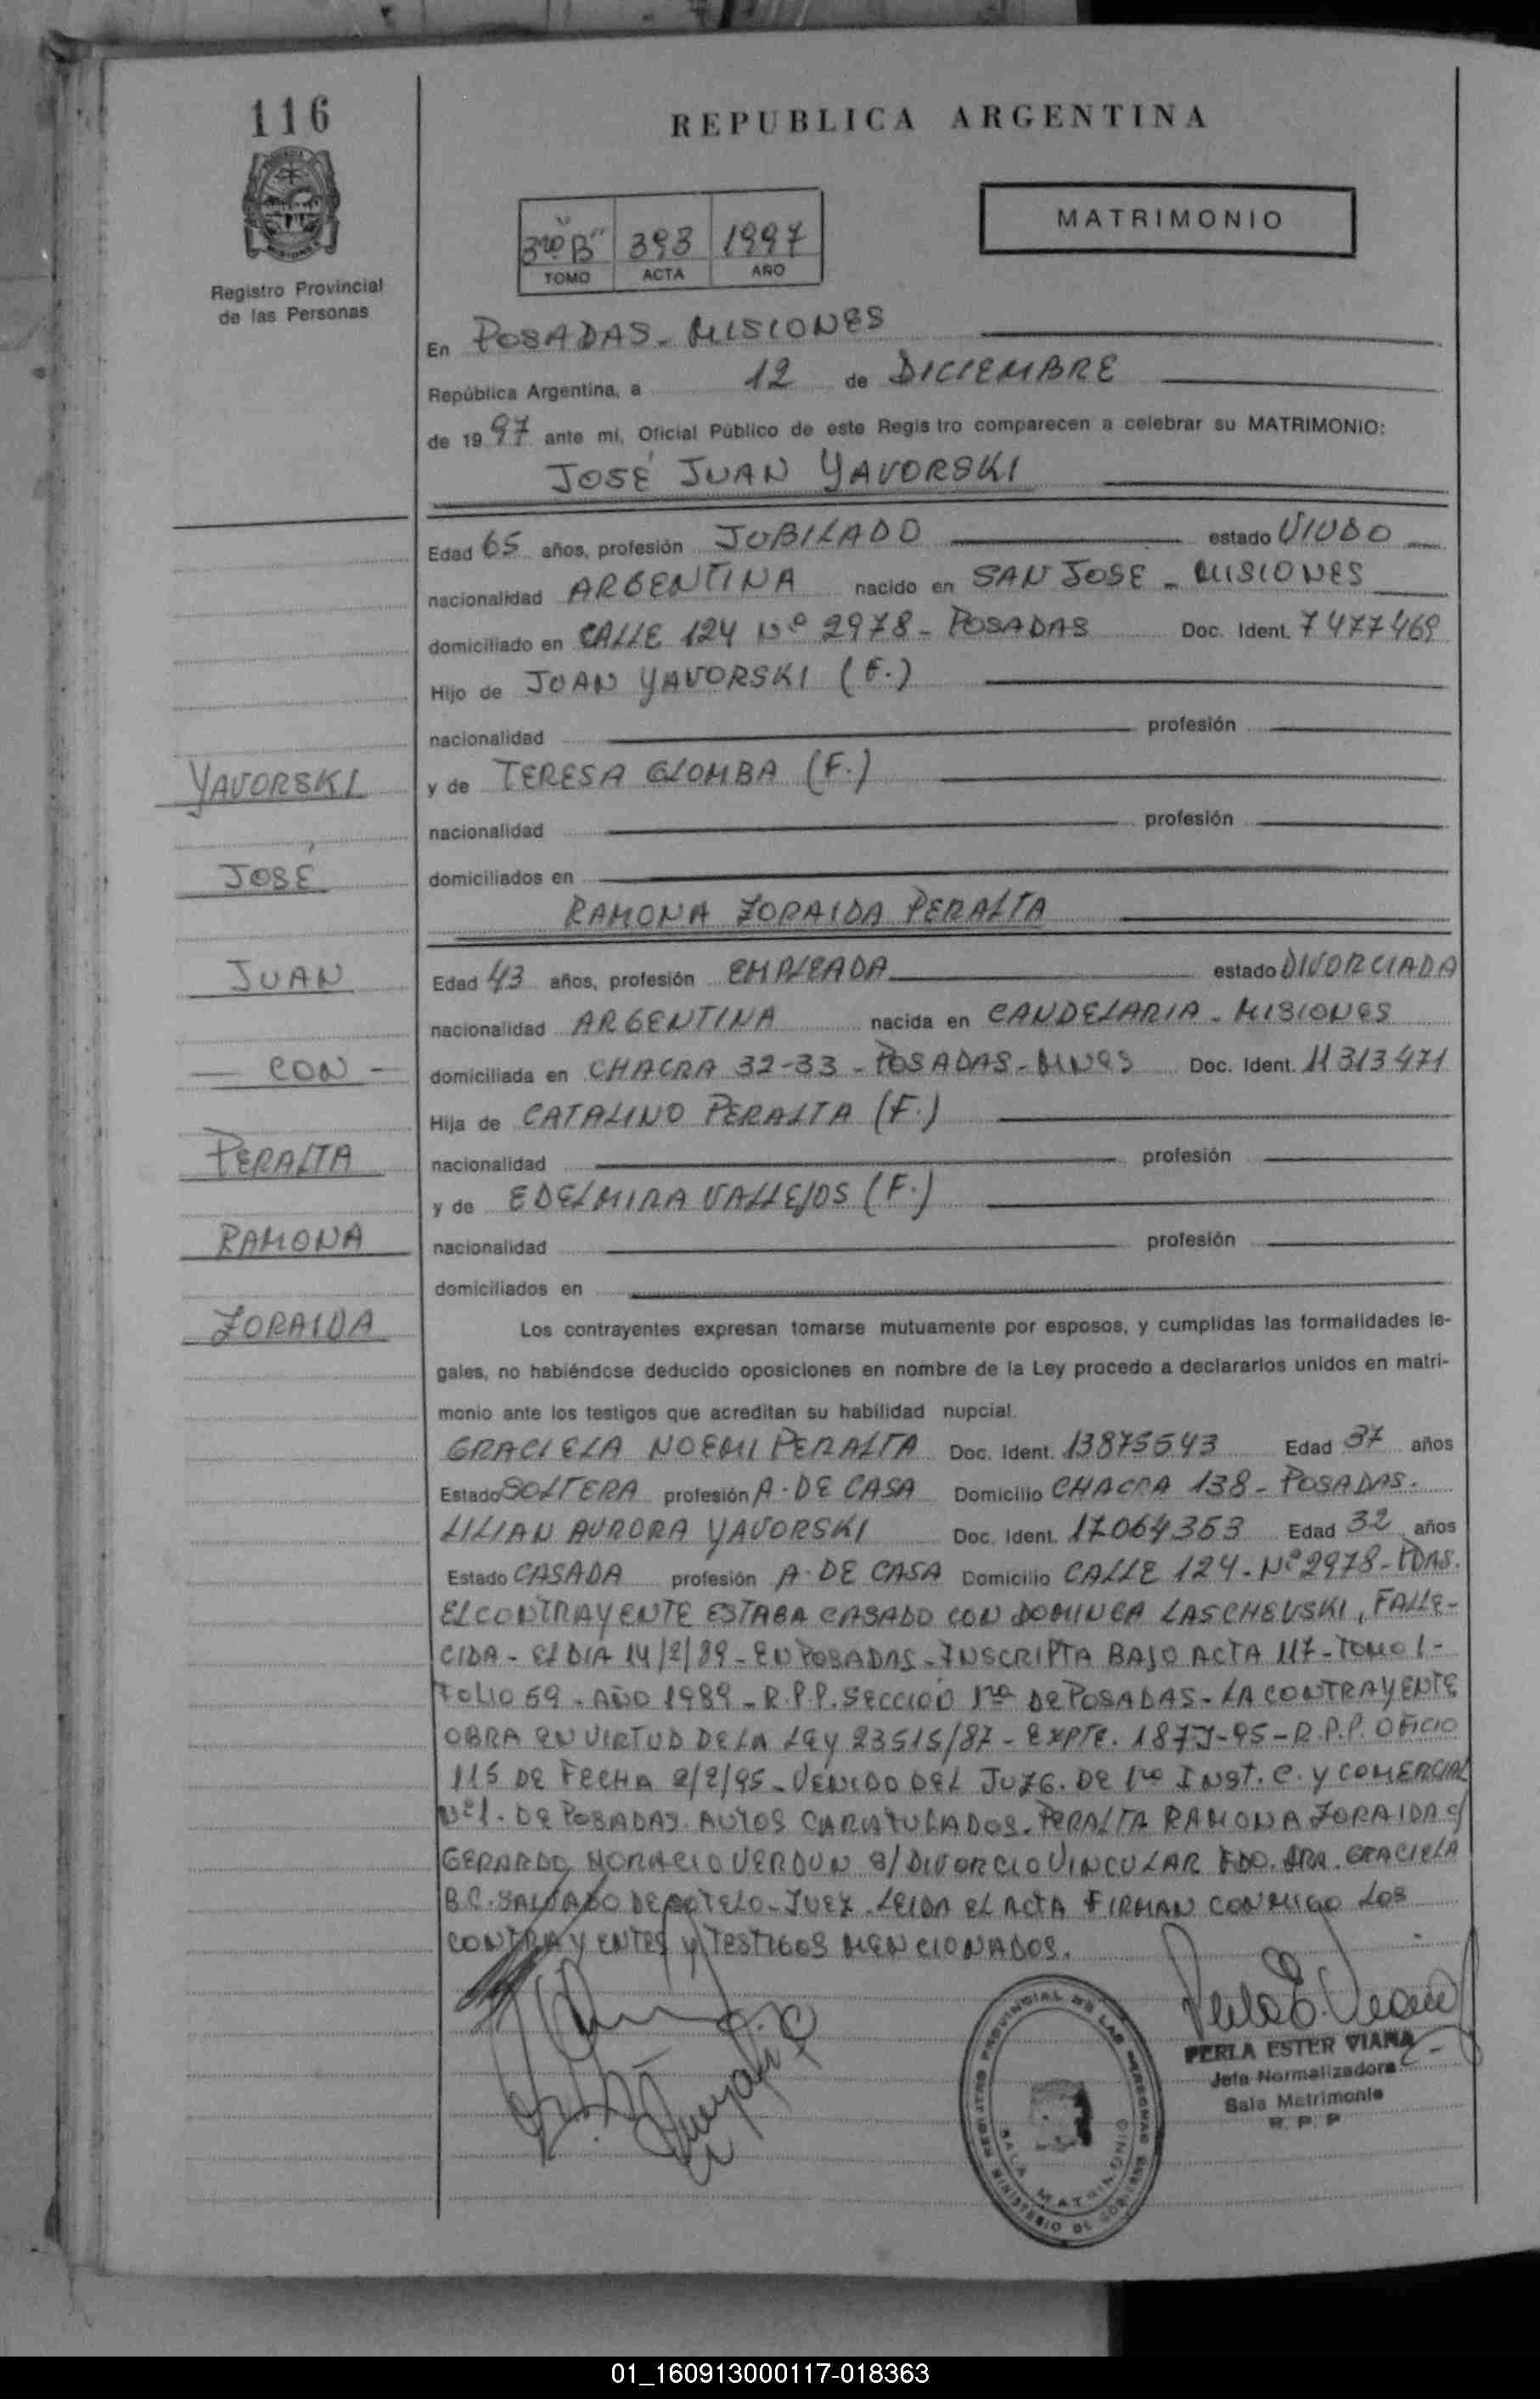 116
REPUBLICA ARGENTINA
MATRIMONIO
3ro "B" 393 1997
TOMO ACTA AÑO
Registro Provincial
de las Personas
En POSADAS - MISIONES
República Argentina, a 12 de DICIEMBRE
de 1997 ante mi, Oficial Público de este Registro comparecen a celebrar su MATRIMONIO:
JOSÉ JUAN YAVORSKI
Edad 65 años, profesión JUBILADO estado VIUDO
nacionalidad ARGENTINA nacido en SAN JOSE - MISIONES
domiciliado en CALLE 124 Nº 2978 - POSADAS Doc. Ident. 7477469
Hijo de JUAN YAVORSKI (F.)
nacionalidad profesión
y de TERESA GLOMBA (F.)
nacionalidad profesión
domiciliados en
RAMONA ZORAIDA PERALTA
Edad 43 años, profesión EMPLEADA estado DIVORCIADA
nacionalidad ARGENTINA nacida en CANDELARIA - MISIONES
domiciliada en CHACRA 32-33 - POSADAS - MNES Doc. Ident. 11313471
Hija de CATALINO PERALTA (F.)
nacionalidad profesión
y de EDELMIRA VALLEJOS (F.)
nacionalidad profesión
domiciliados en
YAVORSKI
JOSÉ
JUAN
- CON -
PERALTA
RAMONA
ZORAIDA
Los contrayentes expresan tomarse mutuamente por esposos, y cumplidas las formalidades le-
gales, no habiéndose deducido oposiciones en nombre de la Ley procedo a declararlos unidos en matri-
monio ante los testigos que acreditan su habilidad nupcial.
GRACIELA NOEMI PERALTA Doc. Ident. 13875543 Edad 37 años
Estado SOLTERA profesión A. DE CASA Domicilio CHACRA 138 - POSADAS.
LILIAN AURORA YAVORSKI Doc. Ident. 17064353 Edad 32 años
Estado CASADA profesión A. DE CASA Domicilio CALLE 124 - Nº 2978 - PDAS.
EL CONTRAYENTE ESTABA CASADO CON DOMINGA LASCHEVSKI, FALLE-
CIDA - EL DIA 14/2/89 - EN POSADAS - INSCRIPTA BAJO ACTA 117 - TOMO 1 -
FOLIO 59 - AÑO 1989 - R.P.P. SECCIÓ 1ra DE POSADAS - LA CONTRAYENTE
OBRA EN VIRTUD DE LA LEY 23515/87 - EXPTE. 187J-95 - R.P.P. OFICIO
115 DE FECHA 2/2/95 - VENIDO DEL JUZG. DE 1ra INST. C. Y COMERCIAL
Nº 1 - DE POSADAS. AUTOS CARATULADOS - PERALTA RAMONA ZORAIDA c/
GERARDO HORACIO VERDUN S/ DIVORCIO VINCULAR FDO. DRA. GRACIELA
B.C. SALDAÑO DE SOTELO - JUEZ. LEIDA EL ACTA FIRMAN CONMIGO LOS
CONTRAYENTES Y TESTIGOS MENCIONADOS.
REGISTRO PROVINCIAL DE LAS PERSONAS
SALA MATRIMONIO
MINISTERIO DE GOBIERNO
PERLA ESTER VIANA
Jefa Normalizadora
Sala Matrimonio
R. P. P
01_160913000117-018363